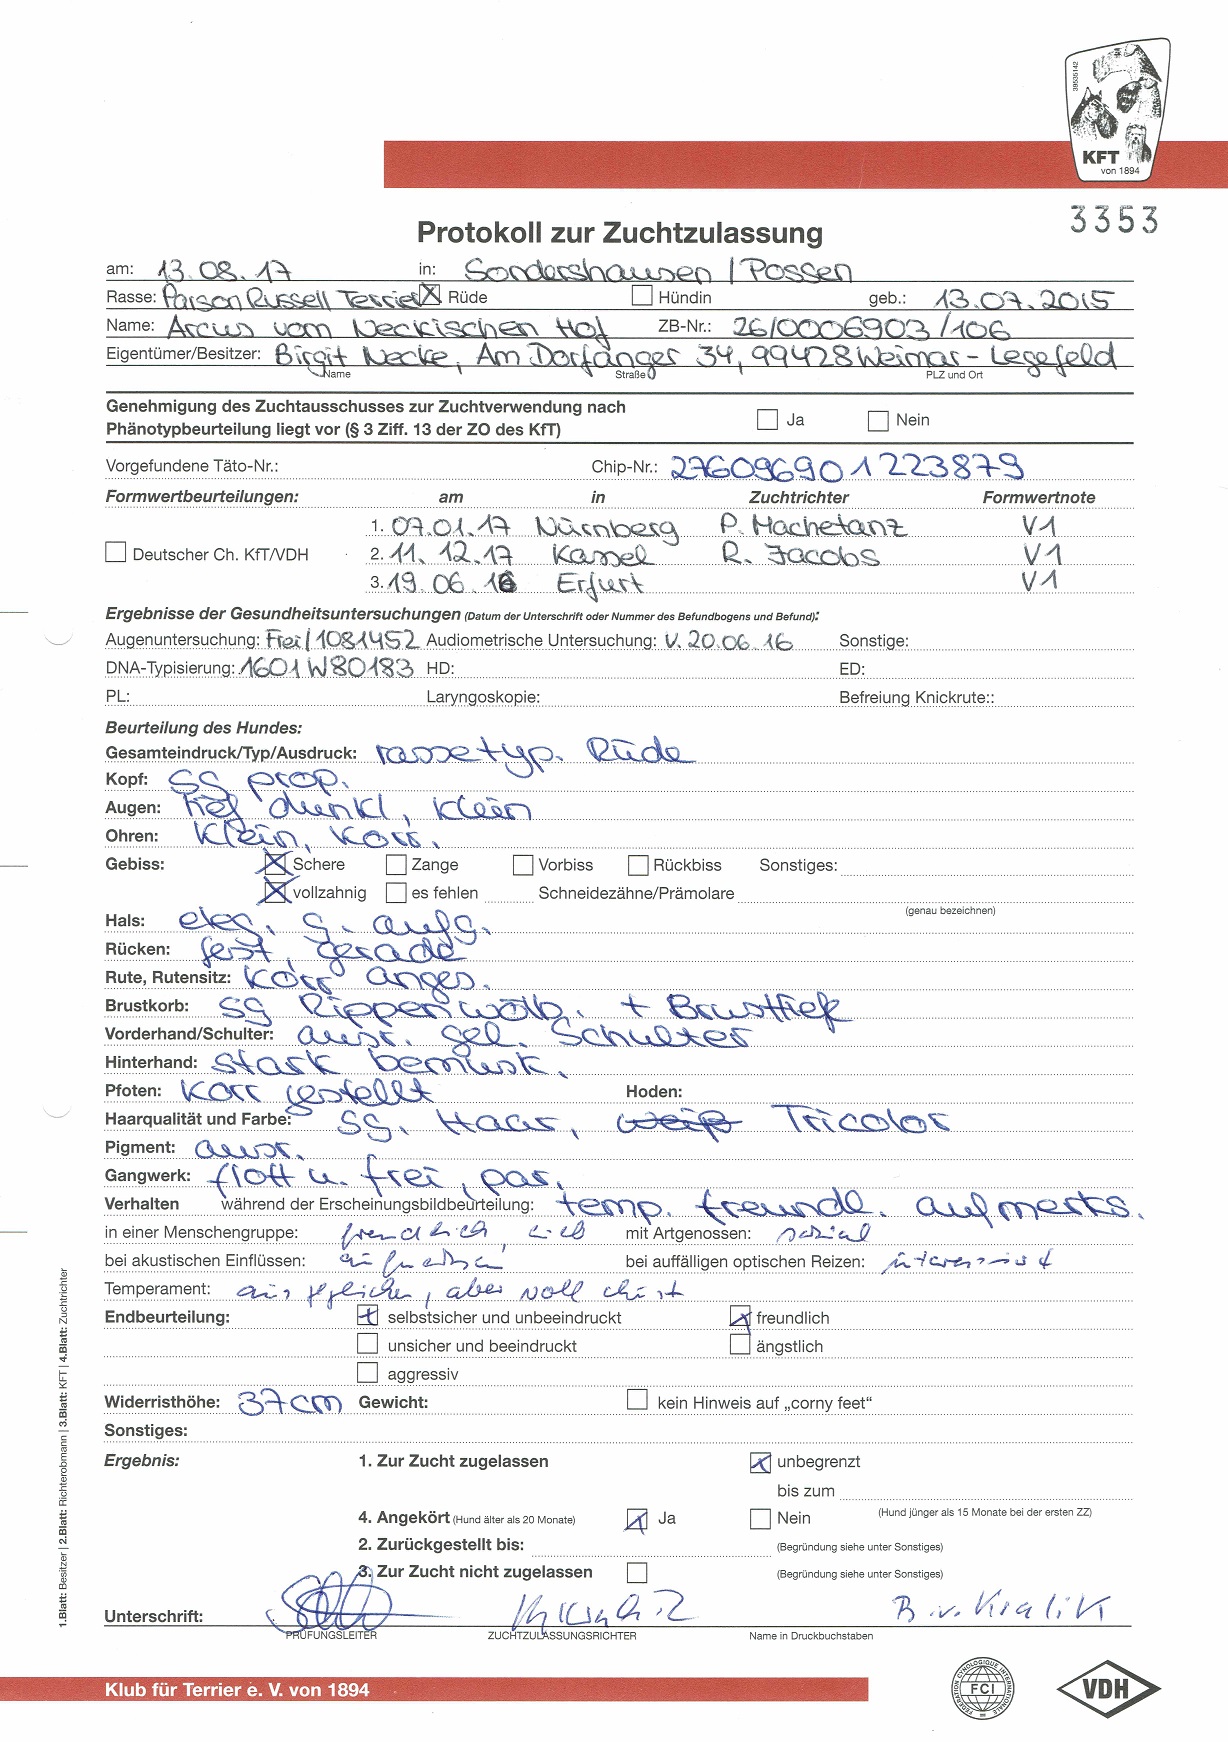 39535142
KFT
von 1894
3353
Protokoll zur Zuchtzulassung
am: 13.08.17 in: Sondershausen / Possen
Rasse: Parson Russell Terrier Rüde Hündin geb.: 13.07.2015
Name: Arcus vom Neckischen Hof ZB-Nr.: 26/0006903/106
Eigentümer/Besitzer: Birgit Necke, Am Dorfanger 34, 99428 Weimar-Legefeld
Name Straße PLZ und Ort
Genehmigung des Zuchtausschusses zur Zuchtverwendung nach
Phänotypbeurteilung liegt vor (§ 3 Ziff. 13 der ZO des KfT) Ja Nein
Vorgefundene Täto-Nr.: Chip-Nr.: 276096901223879
Formwertbeurteilungen: am in Zuchtrichter Formwertnote
1. 07.01.17 Nürnberg P. Machetanz V1
Deutscher Ch. KfT/VDH 2. 11.12.17 Kassel R. Jacobs V1
3. 19.06.16 Erfurt V1
Ergebnisse der Gesundheitsuntersuchungen (Datum der Unterschrift oder Nummer des Befundbogens und Befund):
Augenuntersuchung: Frei/1081452 Audiometrische Untersuchung: v. 20.06.16 Sonstige:
DNA-Typisierung: 1601W80183 HD: ED:
PL: Laryngoskopie: Befreiung Knickrute::
Beurteilung des Hundes:
Gesamteindruck/Typ/Ausdruck: rassetyp. Rüde
Kopf: SG prop.
Augen: tief dunkl, klein
Ohren: klein, korr.
Gebiss: Schere Zange Vorbiss Rückbiss Sonstiges:
vollzahnig es fehlen Schneidezähne/Prämolare
(genau bezeichnen)
Hals: eleg. g. aufg.
Rücken: fest, gerade
Rute, Rutensitz: korr anges.
Brustkorb: sg Rippenwölb. + Brusttiefe
Vorderhand/Schulter: ausr. gel. Schulter
Hinterhand: stark bemusk.
Pfoten: korr gestellt Hoden:
Haarqualität und Farbe: sg. Haar, weiß Tricolor
Pigment: ausr.
Gangwerk: flott u. frei, par.
Verhalten während der Erscheinungsbildbeurteilung: temp. freundl. aufmerks.
in einer Menschengruppe: freundlich, lieb mit Artgenossen: sozial
bei akustischen Einflüssen: bei auffälligen optischen Reizen: interessiert
Temperament: aber voll
Endbeurteilung: selbstsicher und unbeeindruckt freundlich
unsicher und beeindruckt ängstlich
aggressiv
Widerristhöhe: 37cm Gewicht: kein Hinweis auf „corny feet“
Sonstiges:
Ergebnis: 1. Zur Zucht zugelassen unbegrenzt
bis zum
4. Angekört (Hund älter als 20 Monate) Ja Nein (Hund jünger als 15 Monate bei der ersten ZZ)
2. Zurückgestellt bis: (Begründung siehe unter Sonstiges)
3. Zur Zucht nicht zugelassen (Begründung siehe unter Sonstiges)
Unterschrift: B. v. Kralik
PRÜFUNGSLEITER ZUCHTZULASSUNGSRICHTER Name in Druckbuchstaben
1.Blatt: Besitzer | 2.Blatt: Richterobmann | 3.Blatt: KFT | 4.Blatt: Zuchtrichter
Klub für Terrier e. V. von 1894
FEDERATION CYNOLOGIQUE INTERNATIONALE
FCI
VDH